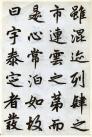 雖混迹列肆之
市連雲之第而
是心常泊如故
曰宇泰定者發